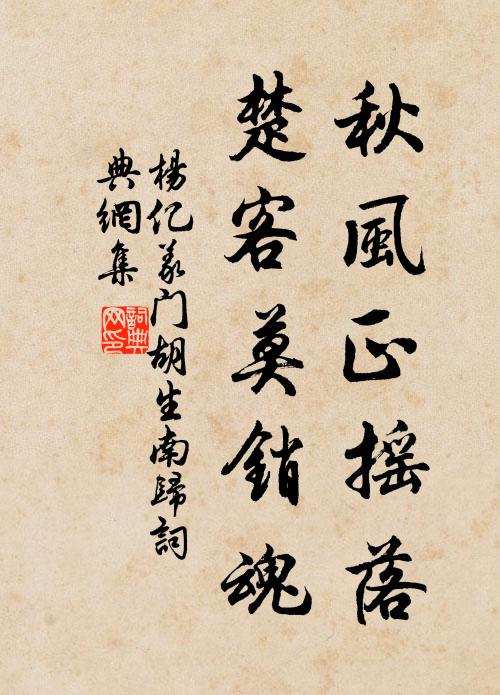 秋風正搖落
楚客莫銷魂
楊億義门胡生南歸詞
典網集
詞典网印